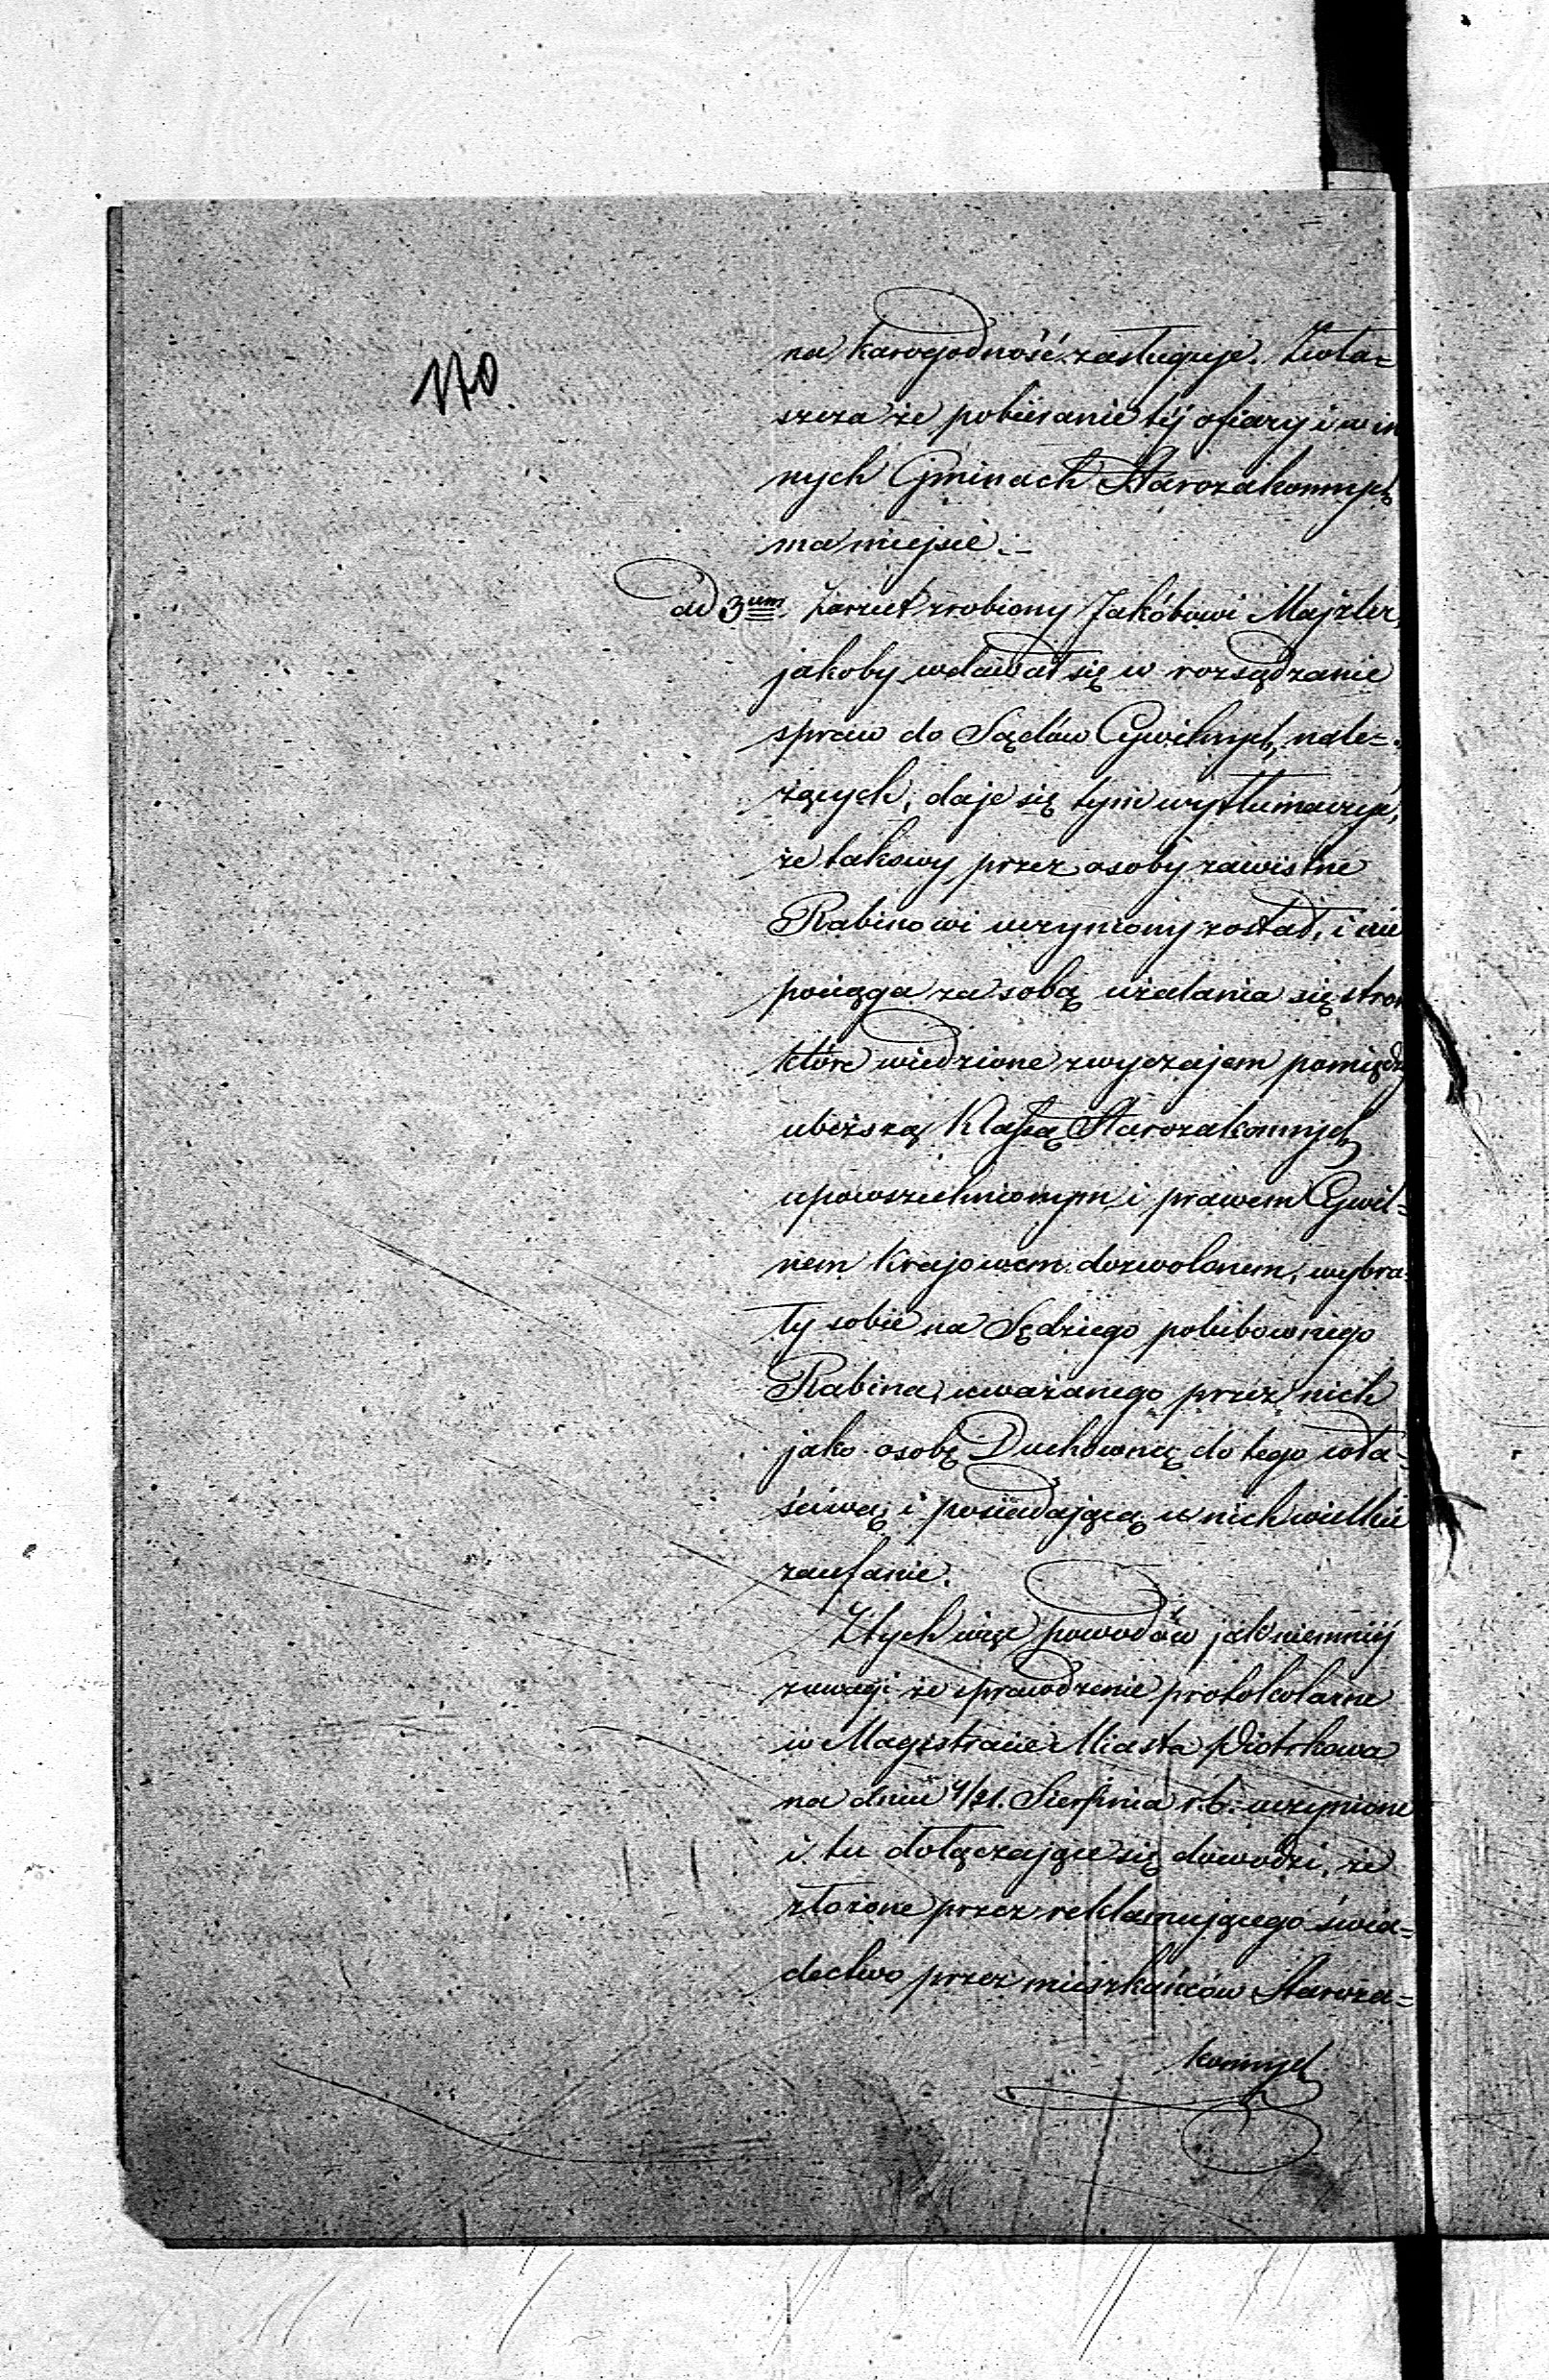 170
na karogodność zasługuje. Zwła=
szcza że pobieranie téj ofiary i w in
nych Gminach Starozakonnych
ma miejsce.–
ad 3um. Zarzut zrobiony Jakóbowi Majzler,
jakoby wdawał się w rozsądzanie
spraw do Sądów Cywilnych, nale=
żących, daje się tym wytłumaczyć,
że takowy przez osoby zawistne
Rabinowi uczyniony został, i nie
pociąga za sobą użalania się stron
które wiedzione zwyczajem pomiędzy
uboższą Klassą Starozakonnych
upowszechnionym i prawem Cywil=
nem Krajowem dozwolonem, wybra=
ły sobie na Sędziego polubownego
Rabina, uważanego przez nich
jako osobę Duchowną do tego wła=
ściwą i posiadającą u nich wielkie
zaufanie.
Z tych więc powodów jak niemniéj
z uwagi że sprawdzenie protokolarne
w Magistracie Miasta Piotrkowa
na dniu 9/21. Sierpnia r.b. uczynione
i tu dołączające się dowodzi, że
złożone przez reklamującego świa=
dectwo przez mieszkańców Staroza=
konnych